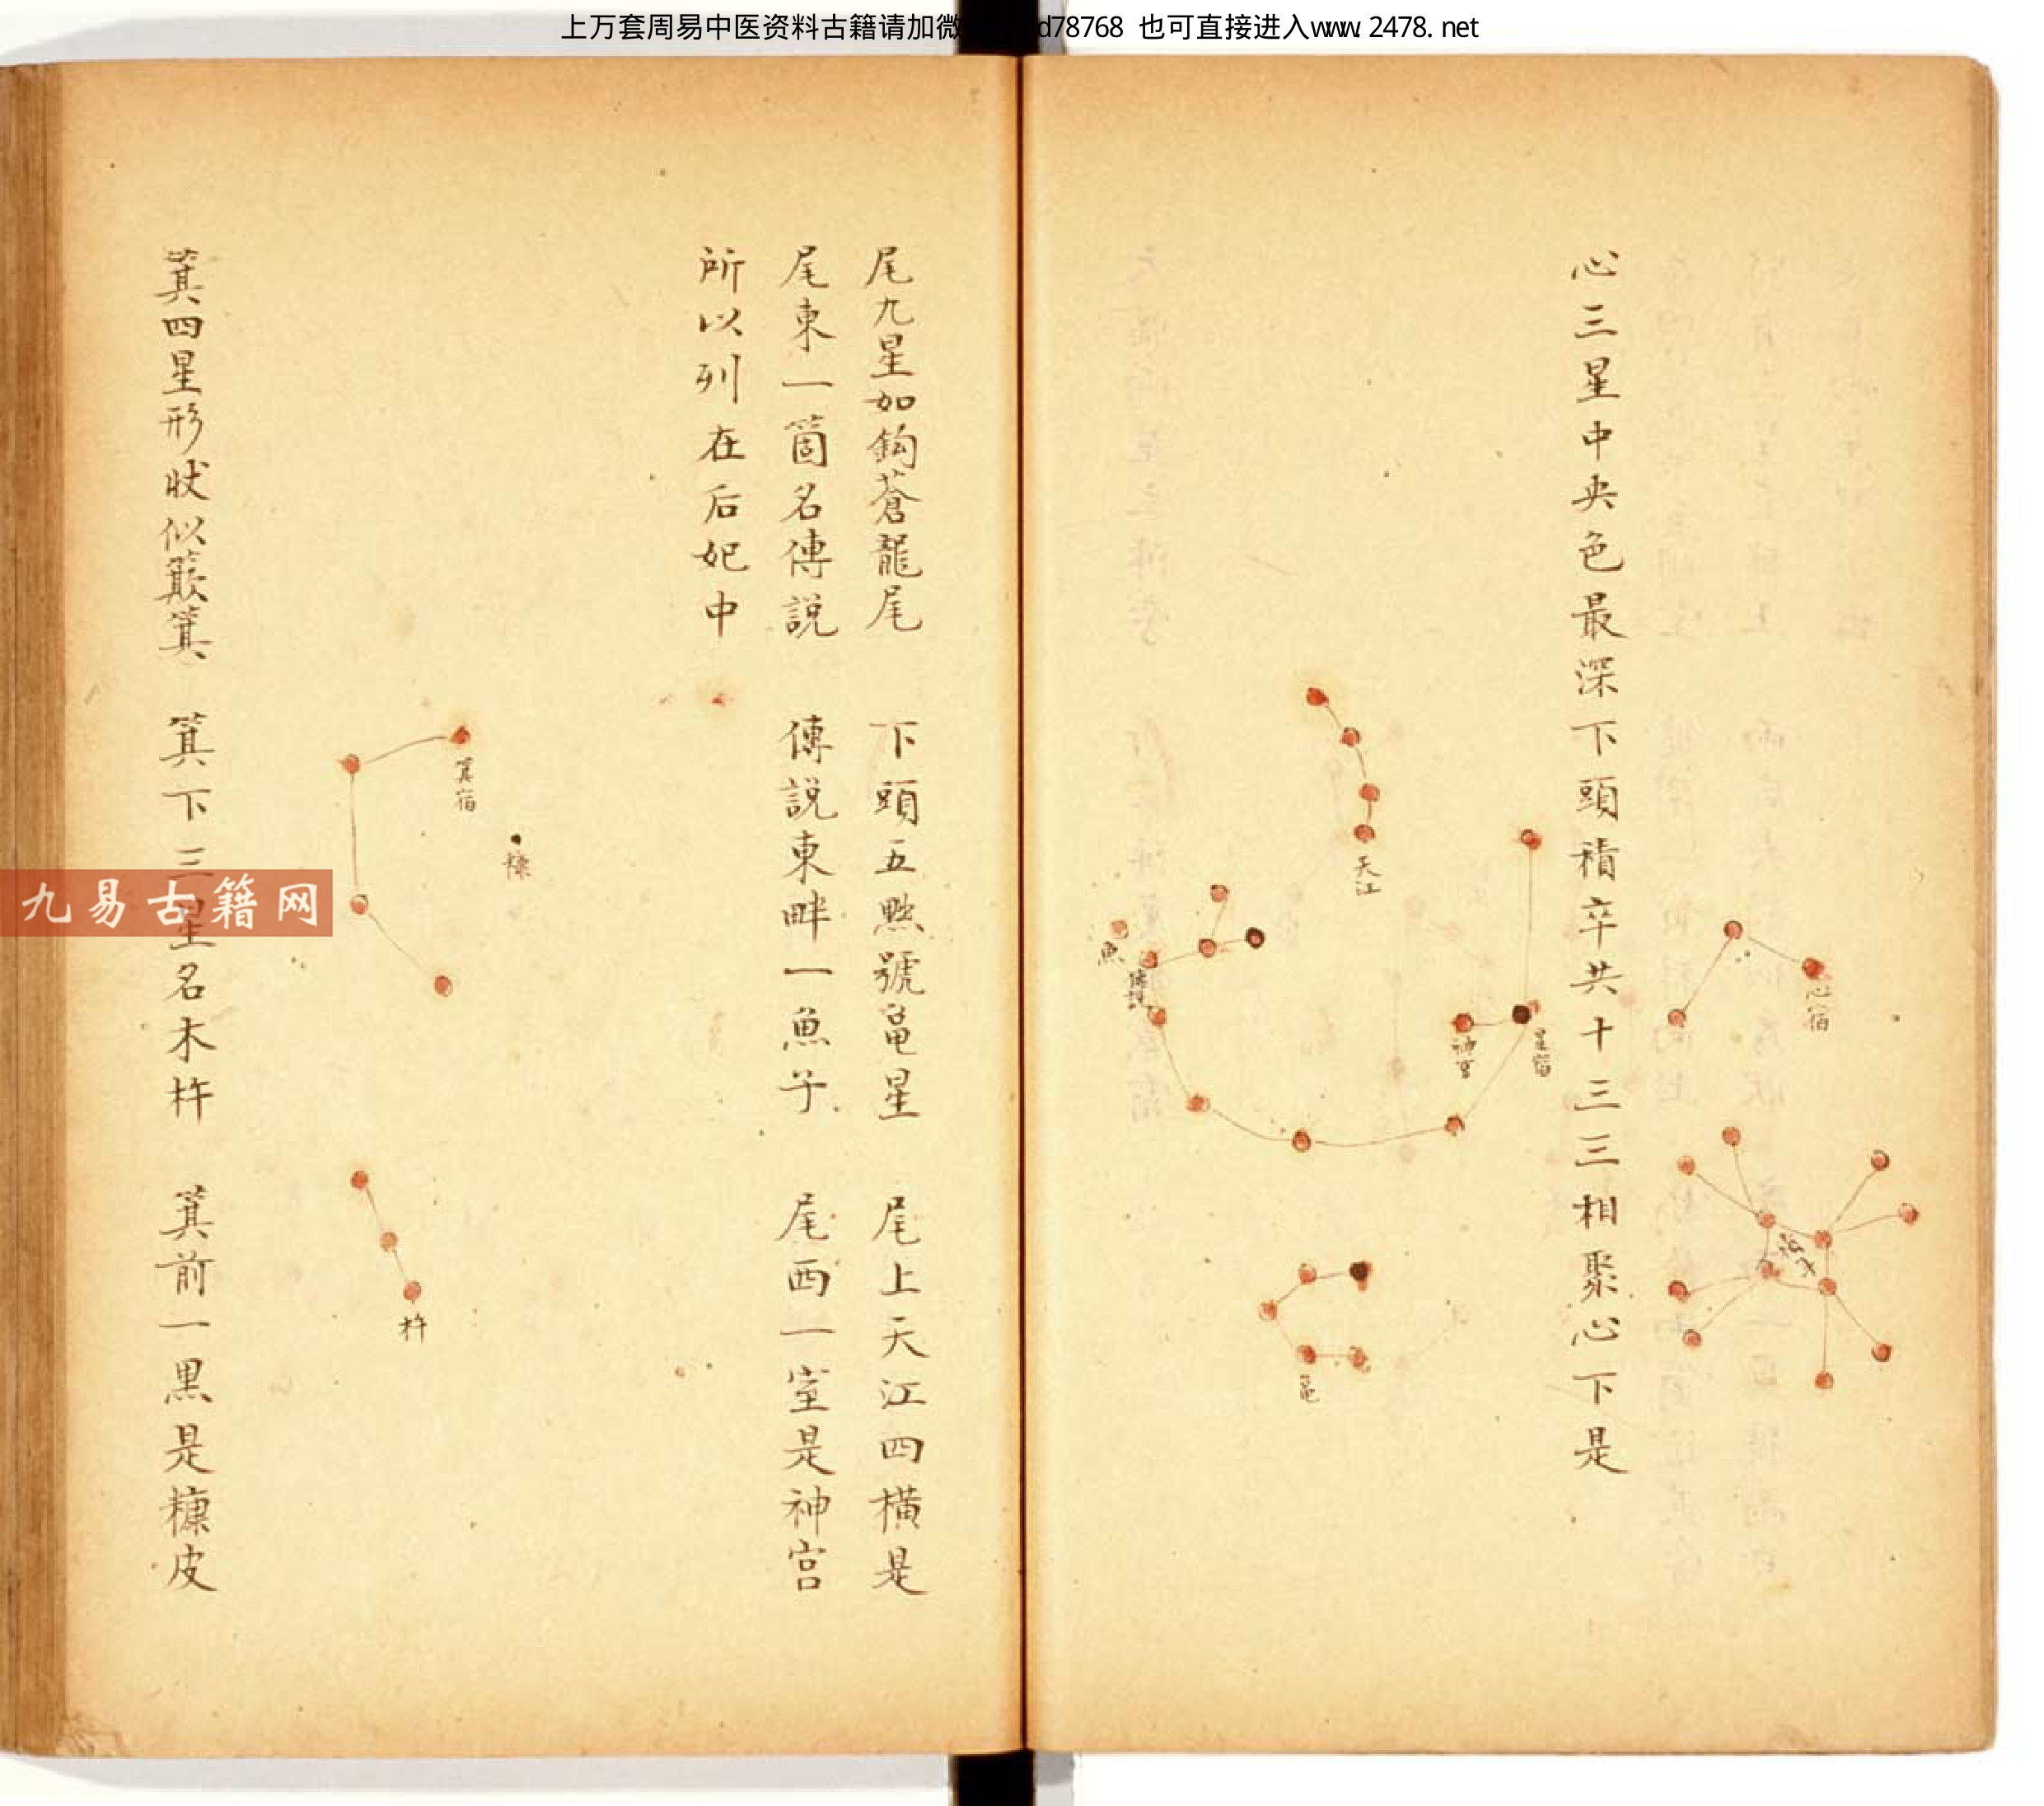 上万套周易中医资料古籍请加微 d78768 也可直接进入www.2478.net
心三星中央色最深下頭積卒共十三三相聚心下是
心宿
積卒
天江
神宮
尾宿
傳説
魚
龜
尾九星如鈎蒼龍尾 下頭五㸃號龜星 尾上天江四橫是
尾東一箇名傳説 傳説東畔一魚子 尾西一室是神宫
所以列在后妃中
箕宿
糠
杵
箕四星形狀似簸箕 箕下三星名木杵 箕前一黒是糠皮
九易古籍网